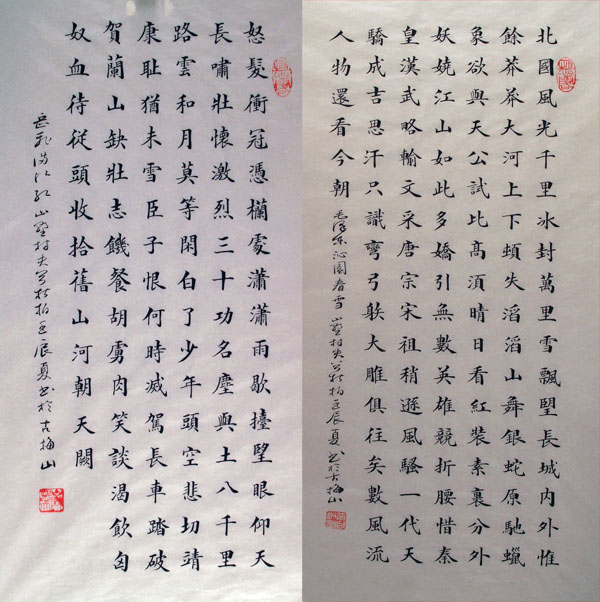 北國風光千里冰封萬里雪飄望長城內外惟
餘莽莽大河上下頓失滔滔山舞銀蛇原馳蠟
象欲與天公試比高須晴日看紅裝素裹分外
妖嬈江山如此多嬌引無數英雄競折腰惜秦
皇漢武略輸文采唐宗宋祖稍遜風騷一代天
驕成吉思汗只識彎弓䠶大雕俱往矣數風流
人物還看今朝 毛澤東沁園春雪 山野村夫 柏壬辰夏書於古梅山
怒髮衝冠憑欄處瀟瀟雨歇擡望眼仰天
長嘯壯懷激烈三十功名塵與土八千里
路雲和月莫等閑白了少年頭空悲切靖
康耻猶未雪臣子恨何時滅駕長車踏破
賀蘭山缺壯志饑餐胡虜肉笑談渴飲匈
奴血待從頭收拾舊山河朝天闕
岳飛滿江紅 山野村夫 柏壬辰夏書於古梅山